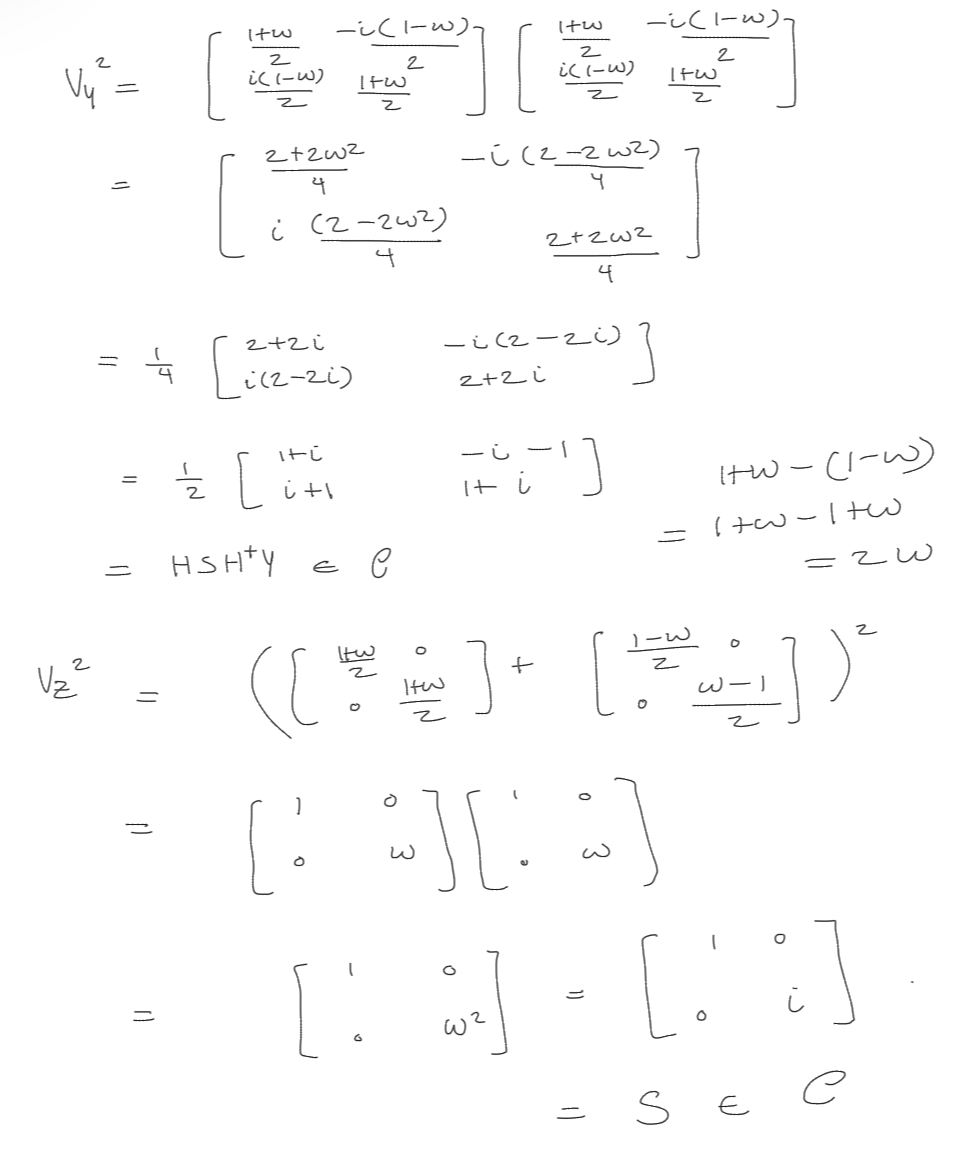 V_y^2 = [ (1+w)/2  -i(1-w)/2 ; i(1-w)/2  (1+w)/2 ] [ (1+w)/2  -i(1-w)/2 ; i(1-w)/2  (1+w)/2 ]
= [ (2+2w^2)/4  -i(2-2w^2)/4 ; i(2-2w^2)/4  (2+2w^2)/4 ]
= 1/4 [ 2+2i  -i(2-2i) ; i(2-2i)  2+2i ]
= 1/2 [ 1+i  -i-1 ; i+1  1+i ]
1+w-(1-w)
= 1+w-1+w
= 2w
= HSH^+Y ∈ C
V_z^2 = ( [ (1+w)/2  0 ; 0  (1+w)/2 ] + [ (1-w)/2  0 ; 0  (w-1)/2 ] )^2
= [ 1  0 ; 0  w ] [ 1  0 ; 0  w ]
= [ 1  0 ; 0  w^2 ] = [ 1  0 ; 0  i ] .
= S ∈ C